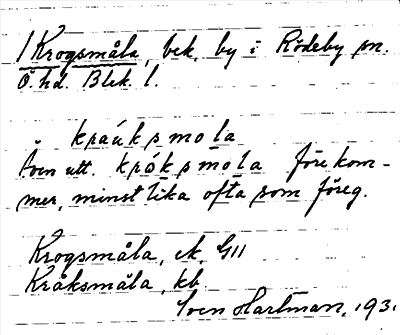 1 Krogsmåla, bek. by i Rödeby sn.
Ö. hd. Blek. l.
kraúksmola
Även utt. króksmola förekom-
mer, minst lika ofta som föreg.
Krogsmåla, ek, GII
Kråksmåla, kb
Sven Hartman, 1931